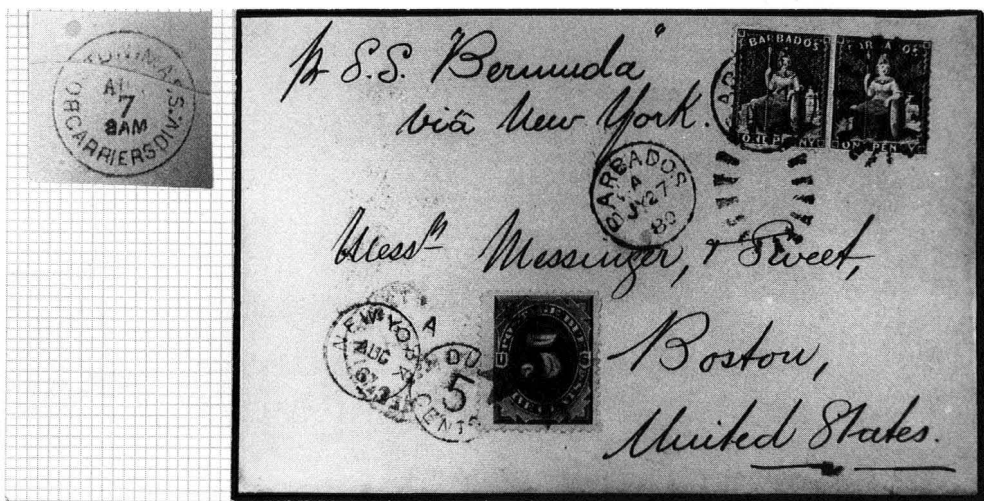 BOSTON, MASS.
7
8AM
CARRIERS DIV.
p S.S. "Bermuda"
via New York.
BARBADOS
ONE PENNY
BARBADOS
ONE PENNY
BARBADOS
A
JY 27
80
Messrs Messenger, & Sweet,
Boston,
United States.
NEW YORK
AUG
A
5
CENTS
5